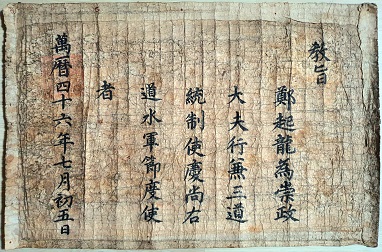 教旨
鄭起龍為崇政
大夫行兼三道
統制使慶尚右
道水軍節度使
者
萬曆四十六年七月初五日